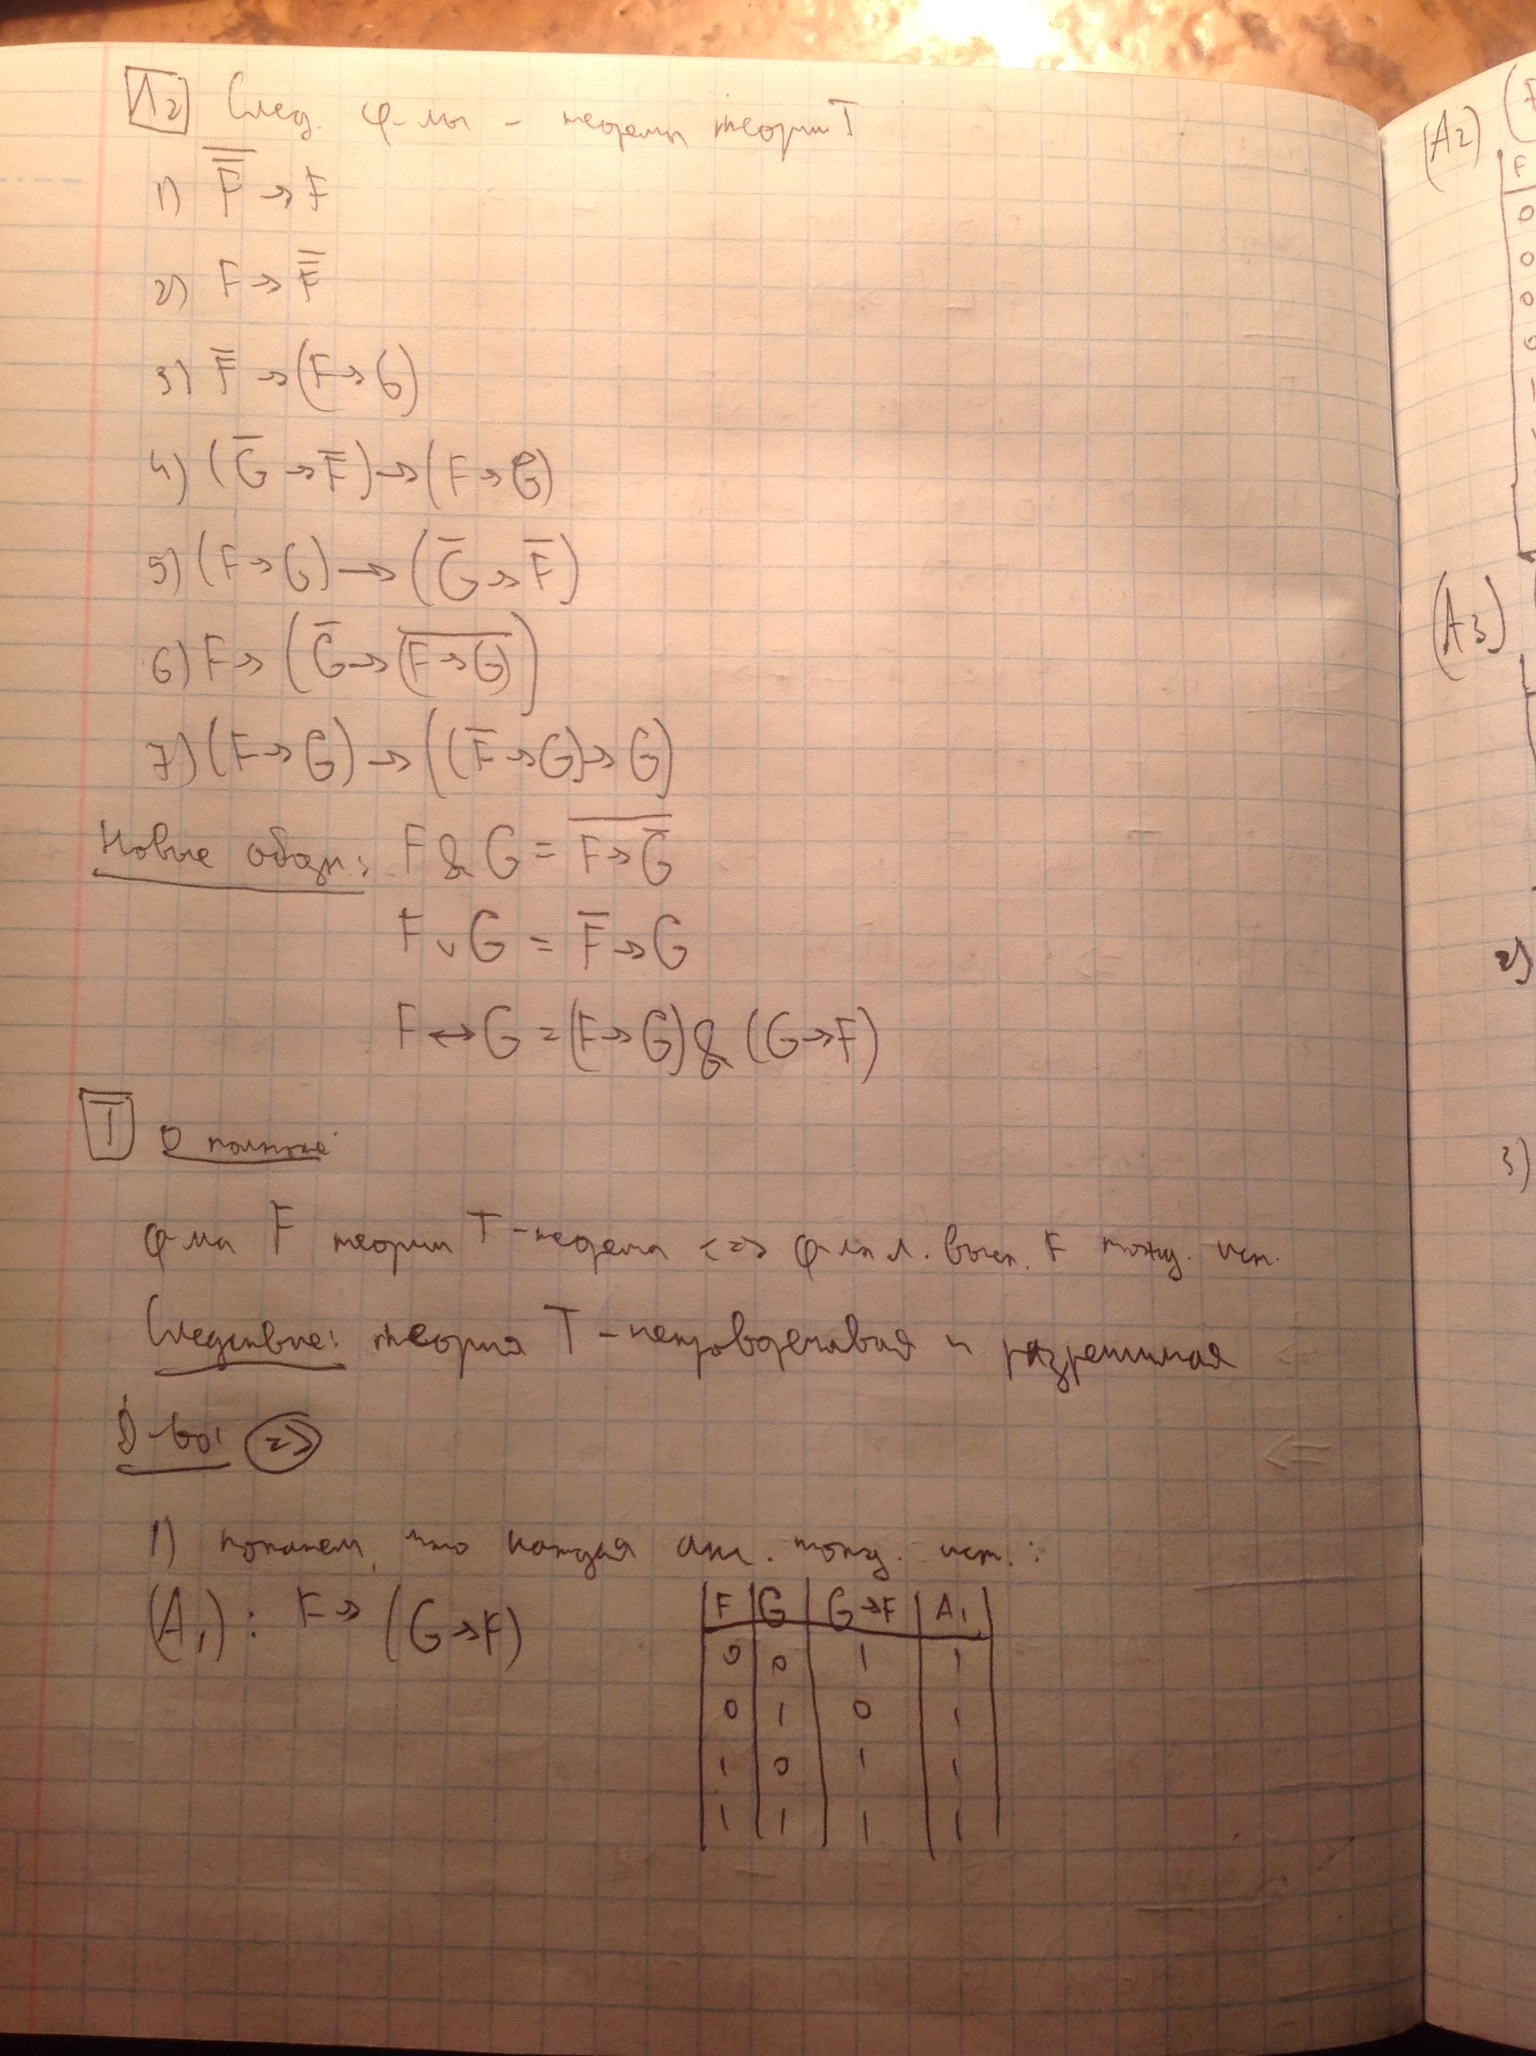 Л2 След. ф-лы - теоремы теории T
1) F̿ → F
2) F → F̿
3) F̅ → (F → G)
4) (G̅ → F̅) → (F → G)
5) (F → G) → (G̅ → F̅)
6) F → (G̅ → \overline{(F → G)})
7) (F → G) → ((F̅ → G) → G)
Новые обозн: F & G = \overline{F → G̅}
F ∨ G = F̅ → G
F ↔ G = (F → G) & (G → F)
T О полноте
ф-ла F теории T - теорема <=> ф-ла л. выск. F тожд. ист.
Следствие: теория T - непроворечивая и разрешимая
Д-во: =>
1) покажем, что каждая акс. тожд. ист.:
(A1): F → (G → F)
F G G→F A1
0 0 1 1
0 1 0 1
1 0 1 1
1 1 1 1
(A2) (F
F
0
0
0
0
1
(A3)
2)
3)